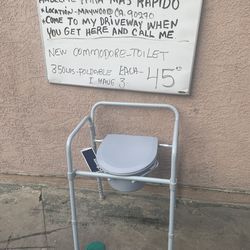 PARA MAS RAPIDO
• LOCATION - MAYWOOD CA. 90270
• COME TO MY DRIVEWAY WHEN
YOU GET HERE AND CALL ME
NEW COMMODORE - TOILET
350LBS - FOLDABLE EACH - 45
I HAVE 3